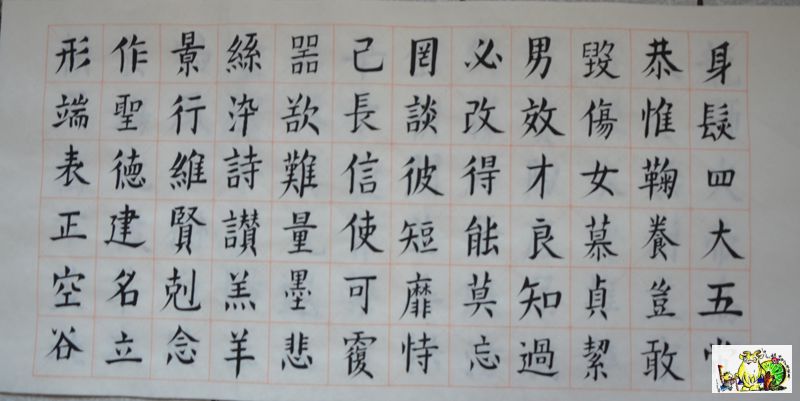 身髮四大五
恭惟鞠養豈敢
毀傷女慕貞絜
男效才良知過
必改得能莫忘
罔談彼短靡恃
己長信使可覆
器欲難量墨悲
絲染詩讚羔羊
景行維賢剋念
作聖德建名立
形端表正空谷